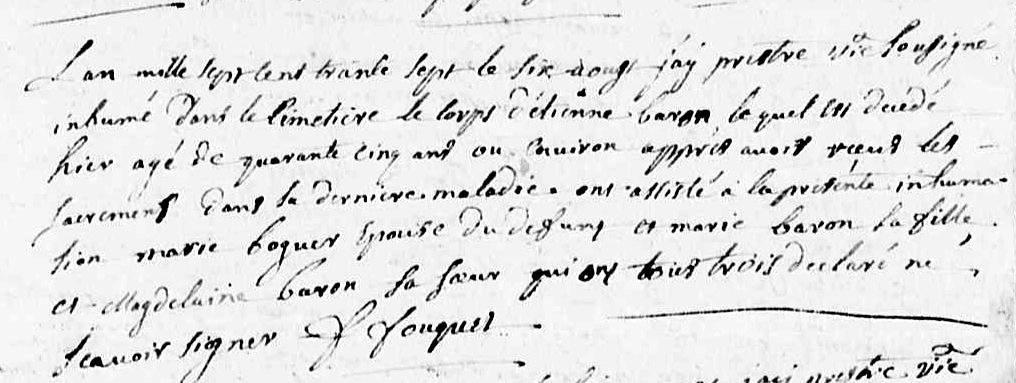 L'an mille sept cent trante sept le six aoust j'ay prestre vic̃e soussigné
inhumé dans le cimetiere le corps d'étienne baron lequel est décédé
hier agé de quarante cinq ans ou environ appres avoir reçeut les
sacrements dans sa derniere maladie. ont assisté a la presente inhuma-
sion marie boguer epouse du defunt et marie baron sa fille
et Magdelaine baron sa sœur qui ont tous trois declaré ne
scavoir signer J fouquet
prestre vic̃e